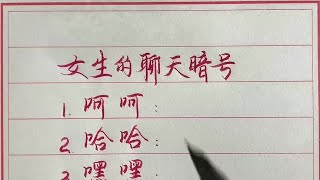 女生的聊天暗号
1. 呵呵：
2. 哈哈：
3. 嘿嘿：